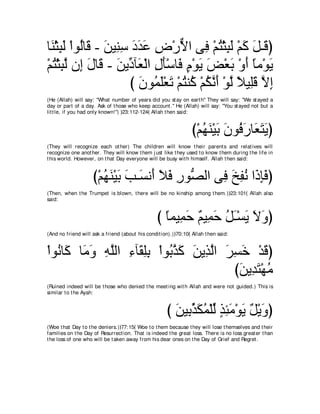 قَـلَ كَمْ لَبِثْتُمْ فِى الاٌّرْضِ عَدَدَ سِنِينَ - قَالُواْ لَبِثْنَا
يَوْماً أَوْ بَعْضَ يَوْمٍ فَاسْأَلِ الْعَآدِّينَ - قَالَ إِن لَّبِثْتُمْ
إِلاَّ قَلِيلاً لَّوْ أَنَّكُمْ كُنتُمْ تَعْلَمُونَ )
(He (Allah) will say: "What number of years did you stay on earth'' They will say: "We stayed a
day or part of a day. Ask of those who keep account.'' He (Allah) will say: "You stayed not but a
little, if you had only known!'') )23:112-124( Allah then said:
(يَتَعَارَفُونَ بَيْنَهُمْ)
(They will recognize each other) The children will know their parents and relatives will
recognize one another. They will know them just like they used to know them during the life in
this world. However, on that Day everyone will be busy with himself. Allah then said:
(فَإِذَا نُفِخَ فِى الصُّورِ فَلاَ أَنسَـبَ بَيْنَهُمْ)
(Then, when the Trumpet is blown, there will be no kinship among them.)23:101( Allah also
said:
(وَلاَ يَسْـَلُ حَمِيمٌ حَمِيماً )
(And no friend will ask a friend (about his condition).)70:10( Allah then said:
(قَدْ خَسِرَ الَّذِينَ كَذَّبُواْ بِلِقَآءِ اللَّهِ وَمَا كَانُواْ
مُهْتَدِينَ)
(Ruined indeed will be those who denied the meeting with Allah and were not guided.) This is
similar to the Ayah:
(وَيْلٌ يَوْمَئِذٍ لِّلْمُكَذِّبِينَ )
(Woe that Day to the deniers.))77:15( Woe to them because they will lose themselves and their
families on the Day of Resurrection. That is indeed the great loss. There is no loss greater than
the loss of one who will be taken away from his dear ones on the Day of Grief and Regret.